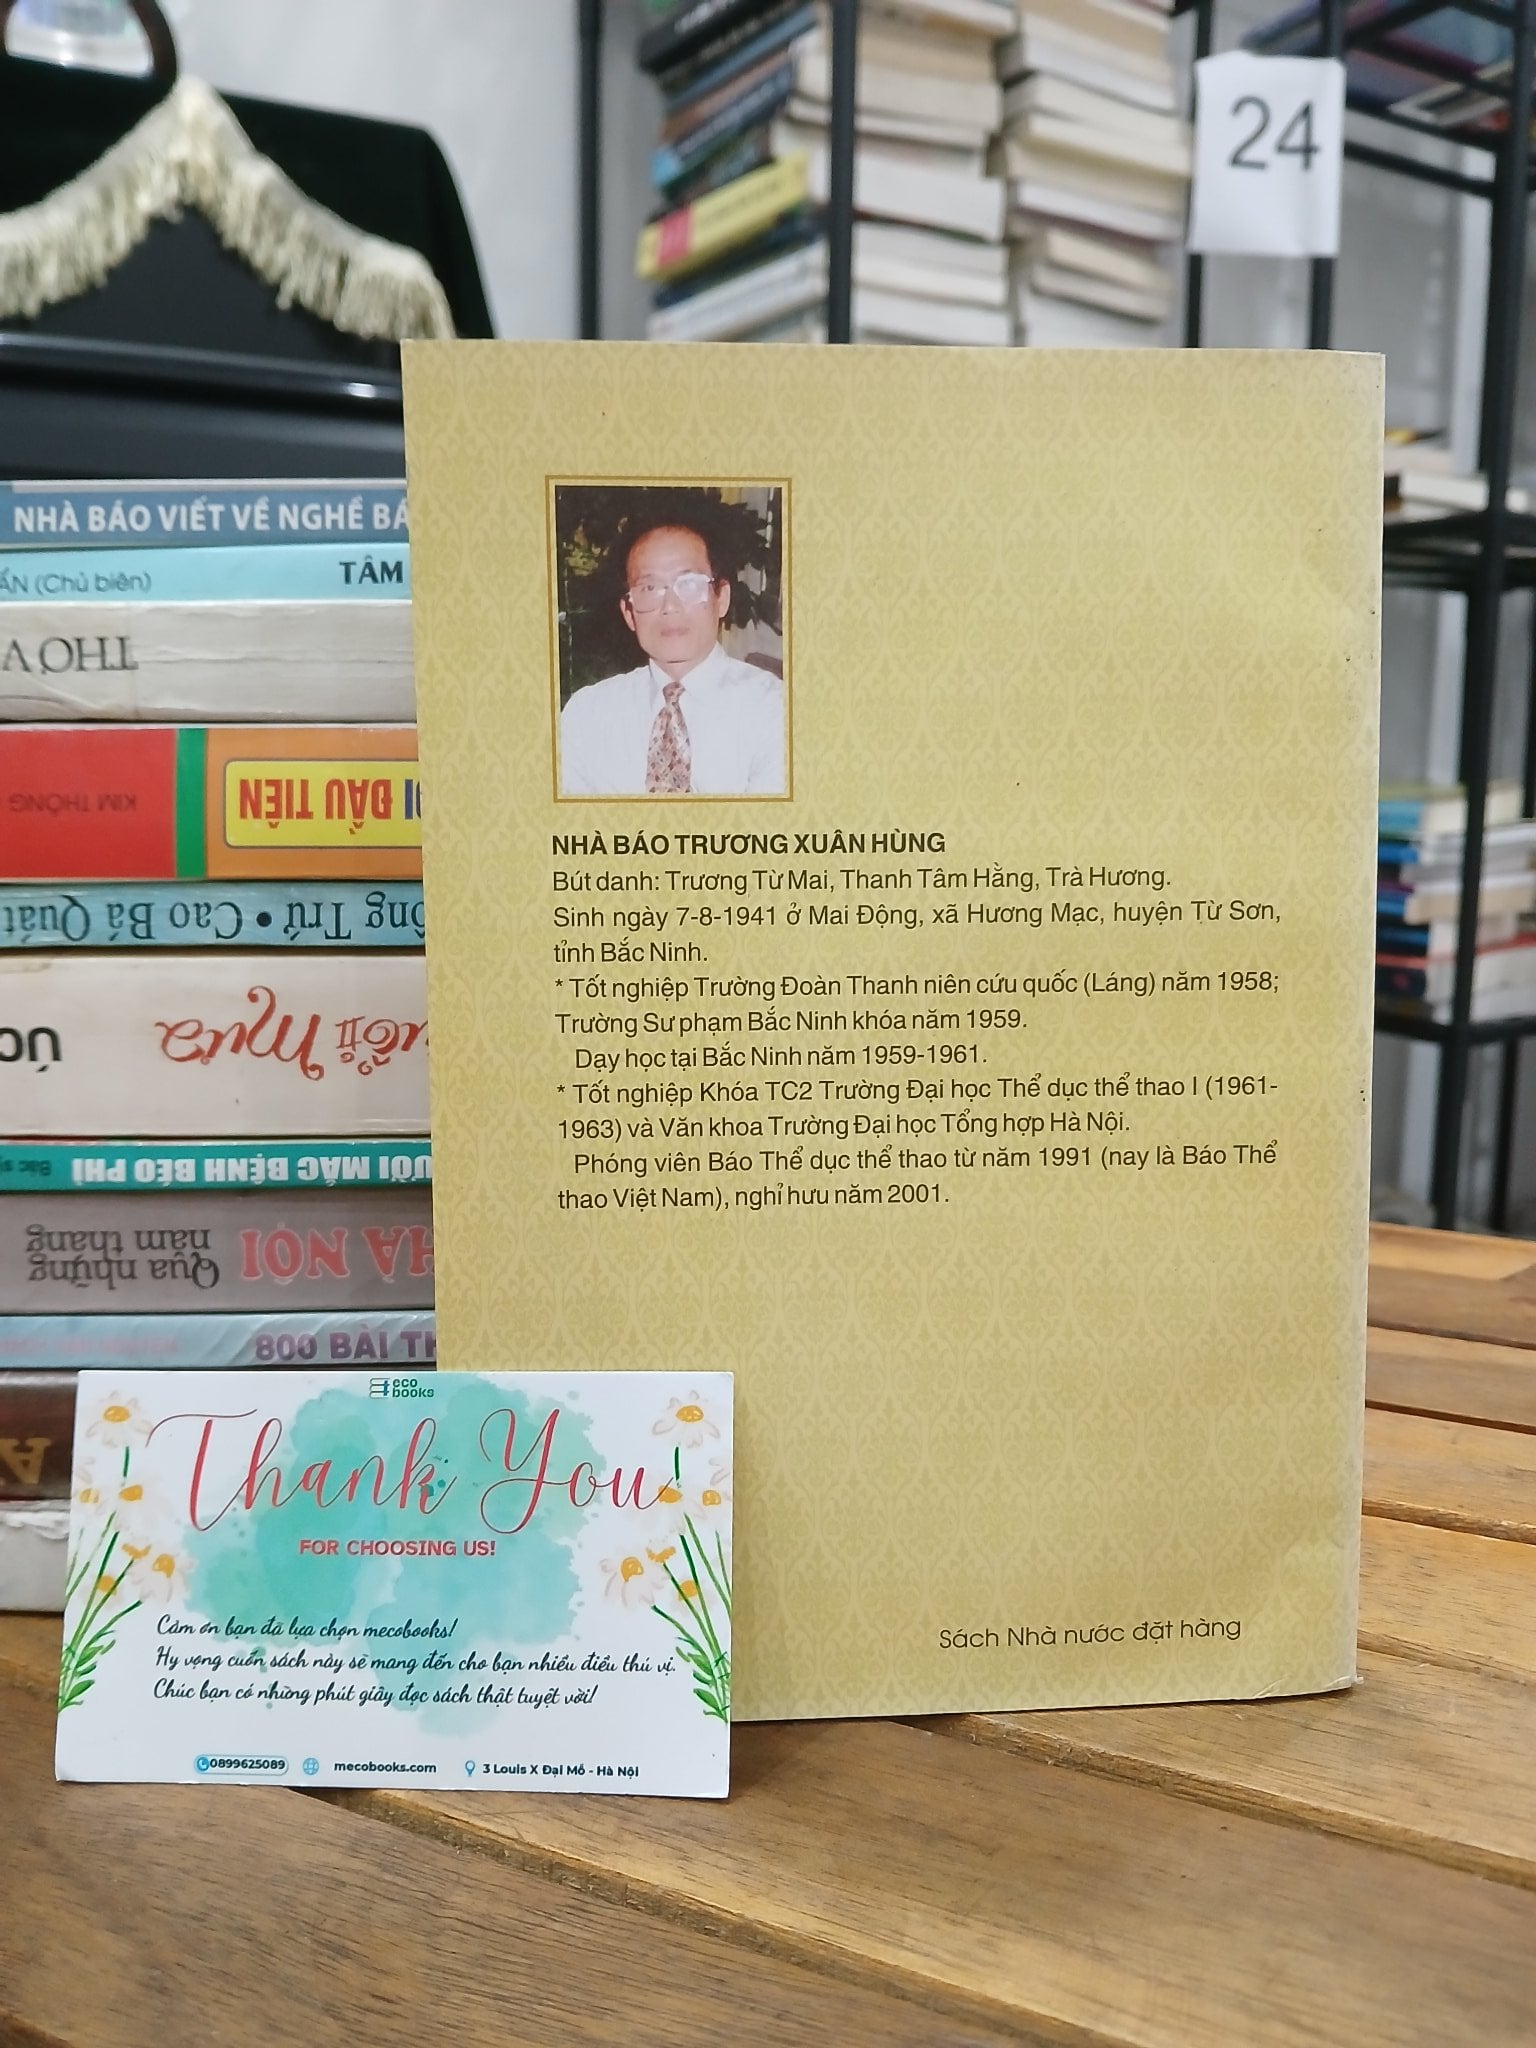 24
NHÀ BÁO VIẾT VỀ NGHỀ BÁ
ẤN (Chủ biên) TÂM
THƠ V
KIM THÔNG I ĐẦU TIÊN
ông Trứ • Cao Bá Quát
uổi Mưa ÚC
ƯỜI MẮC BỆNH BÉO PHÌ Bác s
HÀ NỘI Qua những
năm tháng
800 BÀI TH
NHÀ BÁO TRƯƠNG XUÂN HÙNG
Bút danh: Trương Từ Mai, Thanh Tâm Hằng, Trà Hương.
Sinh ngày 7-8-1941 ở Mai Động, xã Hương Mạc, huyện Từ Sơn,
tỉnh Bắc Ninh.
* Tốt nghiệp Trường Đoàn Thanh niên cứu quốc (Láng) năm 1958;
Trường Sư phạm Bắc Ninh khóa năm 1959.
Dạy học tại Bắc Ninh năm 1959-1961.
* Tốt nghiệp Khóa TC2 Trường Đại học Thể dục thể thao I (1961-
1963) và Văn khoa Trường Đại học Tổng hợp Hà Nội.
Phóng viên Báo Thể dục thể thao từ năm 1991 (nay là Báo Thể
thao Việt Nam), nghỉ hưu năm 2001.
Sách Nhà nước đặt hàng
eco
books
Thank You
FOR CHOOSING US!
Cảm ơn bạn đã lựa chọn mecobooks!
Hy vọng cuốn sách này sẽ mang đến cho bạn nhiều điều thú vị.
Chúc bạn có những phút giây đọc sách thật tuyệt vời!
0899625089 mecobooks.com 3 Louis X Đại Mỗ - Hà Nội